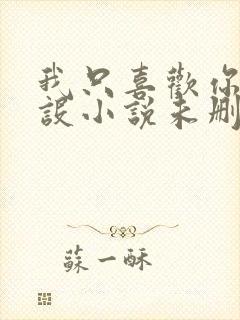 我只喜歡你
設小說未刪
蘇一酥